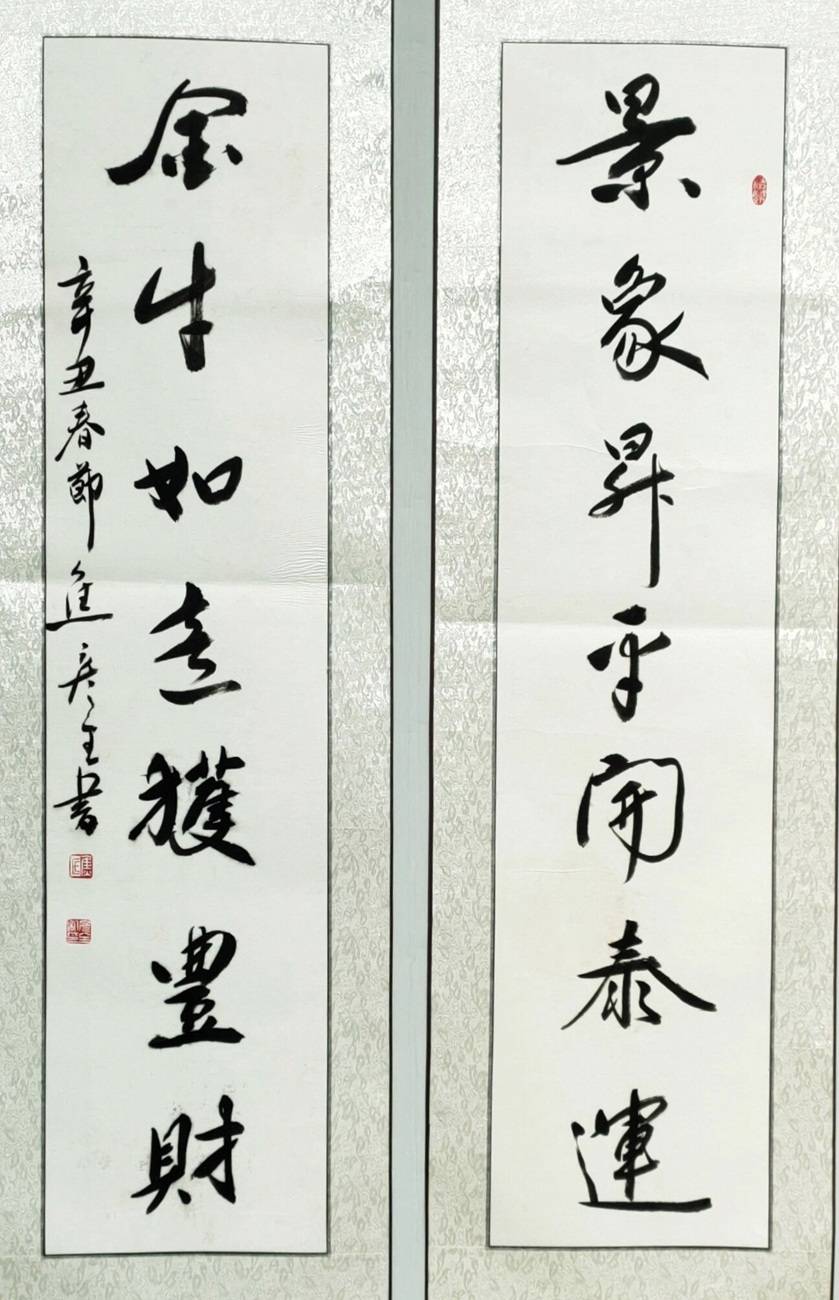 景象昇平開泰運
金牛如意獲豐財
辛丑春節進彥全書